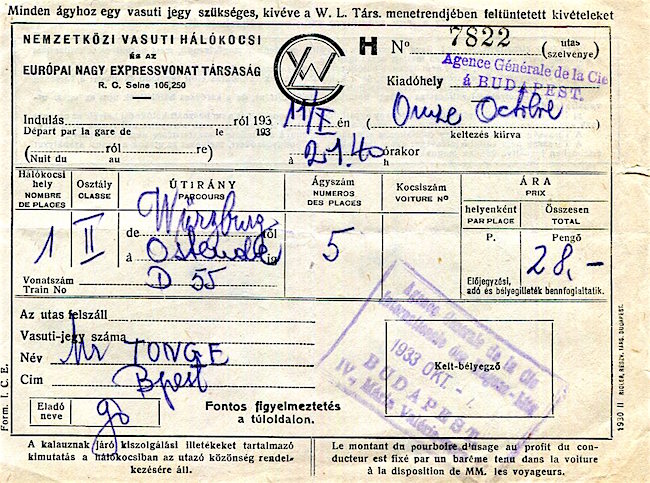 Minden ágyhoz egy vasuti jegy szükséges, kivéve a W. L. Társ. menetrendjében feltüntetett kivételeket
NEMZETKÖZI VASUTI HÁLÓKOCSI
ÉS AZ
EURÓPAI NAGY EXPRESSVONAT TÁRSASÁG
R. C. Seine 106,250
H Nº 7822 (utas szelvénye)
Kiadóhely
Agence Générale de la Cie
á BUDAPEST.
Indulás ról 193 11/X én
Départ par la gare de le 193
Onze Octobre
keltezés kiirva
( ról re)
(Nuit du au)
à 21.40 órakor
h
Hálókocsi hely
NOMBRE DE PLACES
Osztály
CLASSE
ÚTIRÁNY
PARCOURS
Ágyszám
NUMEROS DES PLACES
Kocsiszám
VOITURE Nº
ÁRA
PRIX
helyenként
PAR PLACE
Összesen
TOTAL
1 II
de Würzburg től
à Ostende ig
5
P. Pengő
28,-
Vonatszám
Train No
D 55
Előjegyzési,
adó és bélyegilleték bennfoglaltatik.
Az utas felszáll
Vasuti-jegy száma
Név Mr TONGE
Cim Bpest
Eladó neve
Fontos figyelmeztetés
a túloldalon.
Agence Générale de la Cie
Internationale des Wagons-Lits
1933 OKT.
BUDAPEST
IV., Mária Valéria
Kelt-bélyegző
Form. I. C. E.
1930 II RIGLER, RÉSZV. TÁRS. BUDAPEST.
A kalauznak járó kiszolgálási illetékeket tartalmazó
kimutatás a hálókocsiban az utazó közönség rendel-
kezésére áll.
Le montant du pourboire d'usage au profit du con-
ducteur est fixé par un barême tenu dans la voiture
à la disposition de MM. les voyageurs.